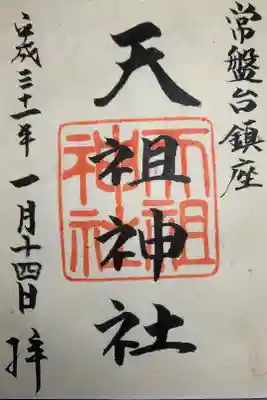 常盤台鎮座
天祖神社
天祖
神社
平成三十一年一月十四日 拝